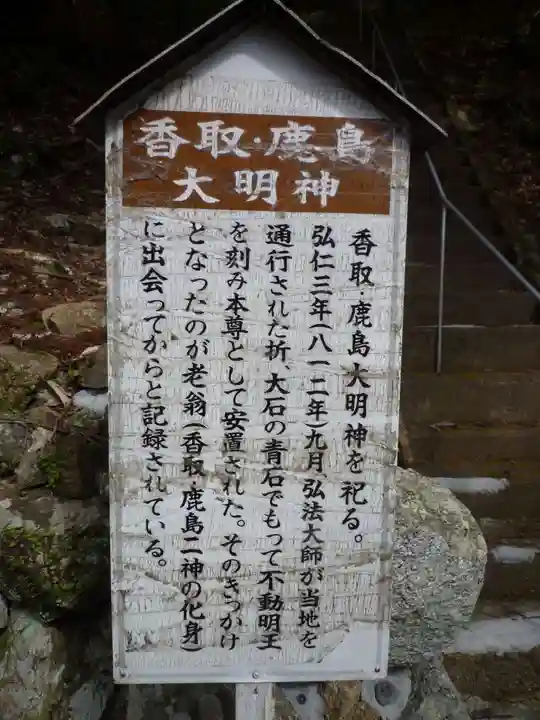 香取・鹿島
大明神
香取・鹿島大明神を祀る。
弘仁三年(八一二年)九月、弘法大師が当地を
通行された折、大石の青石でもって不動明王
を刻み本尊として安置された。そのきっかけ
となったのが老翁(香取・鹿島二神の化身)
に出会ってからと記録されている。